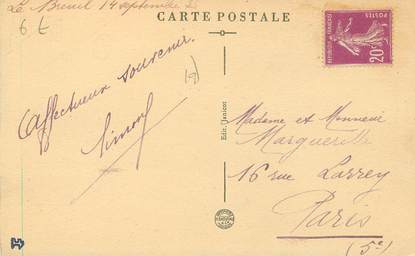 Le Breuil 14 septembre
CARTE POSTALE
6 E
POSTES
20c
REPUBLIQUE FRANÇAISE
Affectueux souvenir.
Simon
Edit. Janicot
Madame et Monsieur
Marguerite
16 rue Larrey
Paris
(5e)